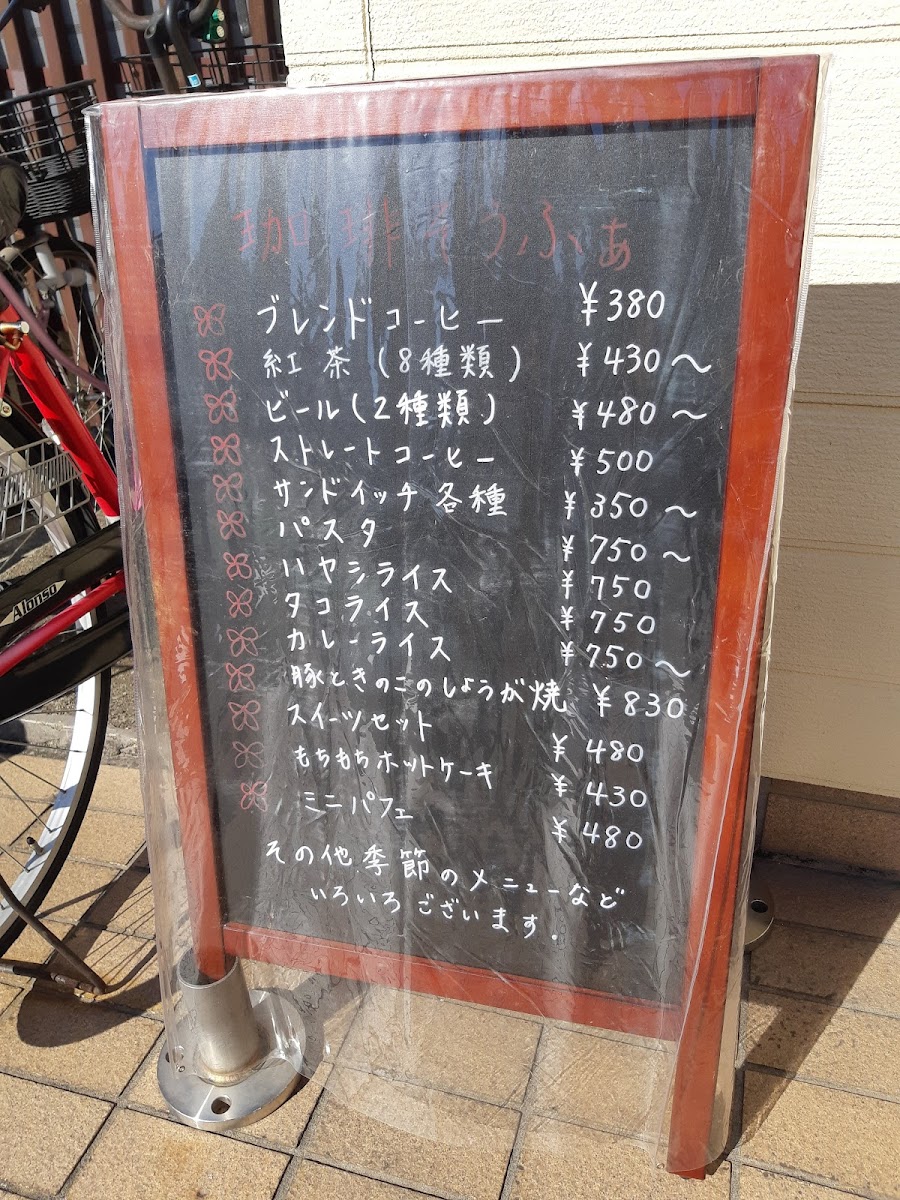 珈琲そうふぁ
ブレンドコーヒー ¥380
紅茶(8種類) ¥430〜
ビール(2種類) ¥480〜
ストレートコーヒー ¥500
サンドイッチ各種 ¥350〜
パスタ ¥750〜
ハヤシライス ¥750
タコライス ¥750
カレーライス ¥750〜
豚ときのこのしょうが焼 ¥830
スイーツセット ¥480
もちもちホットケーキ ¥430
ミニパフェ ¥480
その他季節のメニューなど
いろいろございます.
Alonso